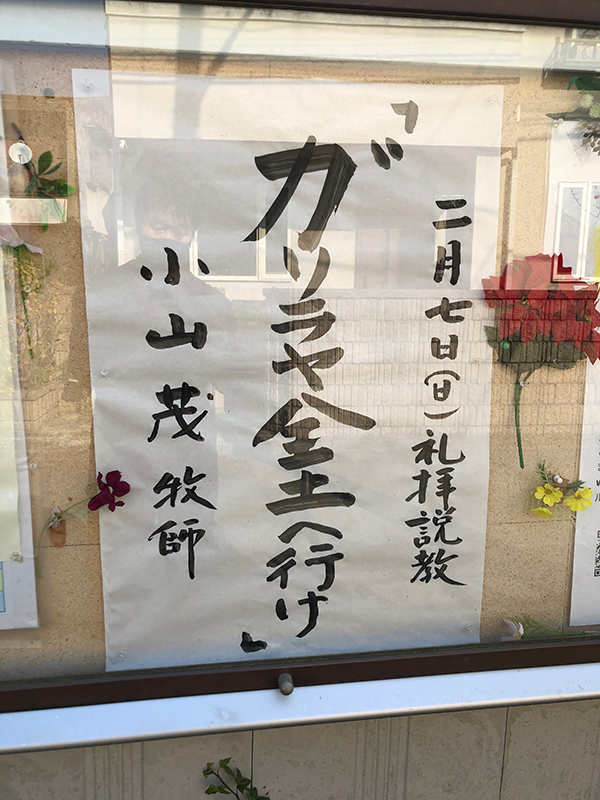 二月七日(日)礼拝説教
「ガリラヤ全土へ行け」
小山茂牧師